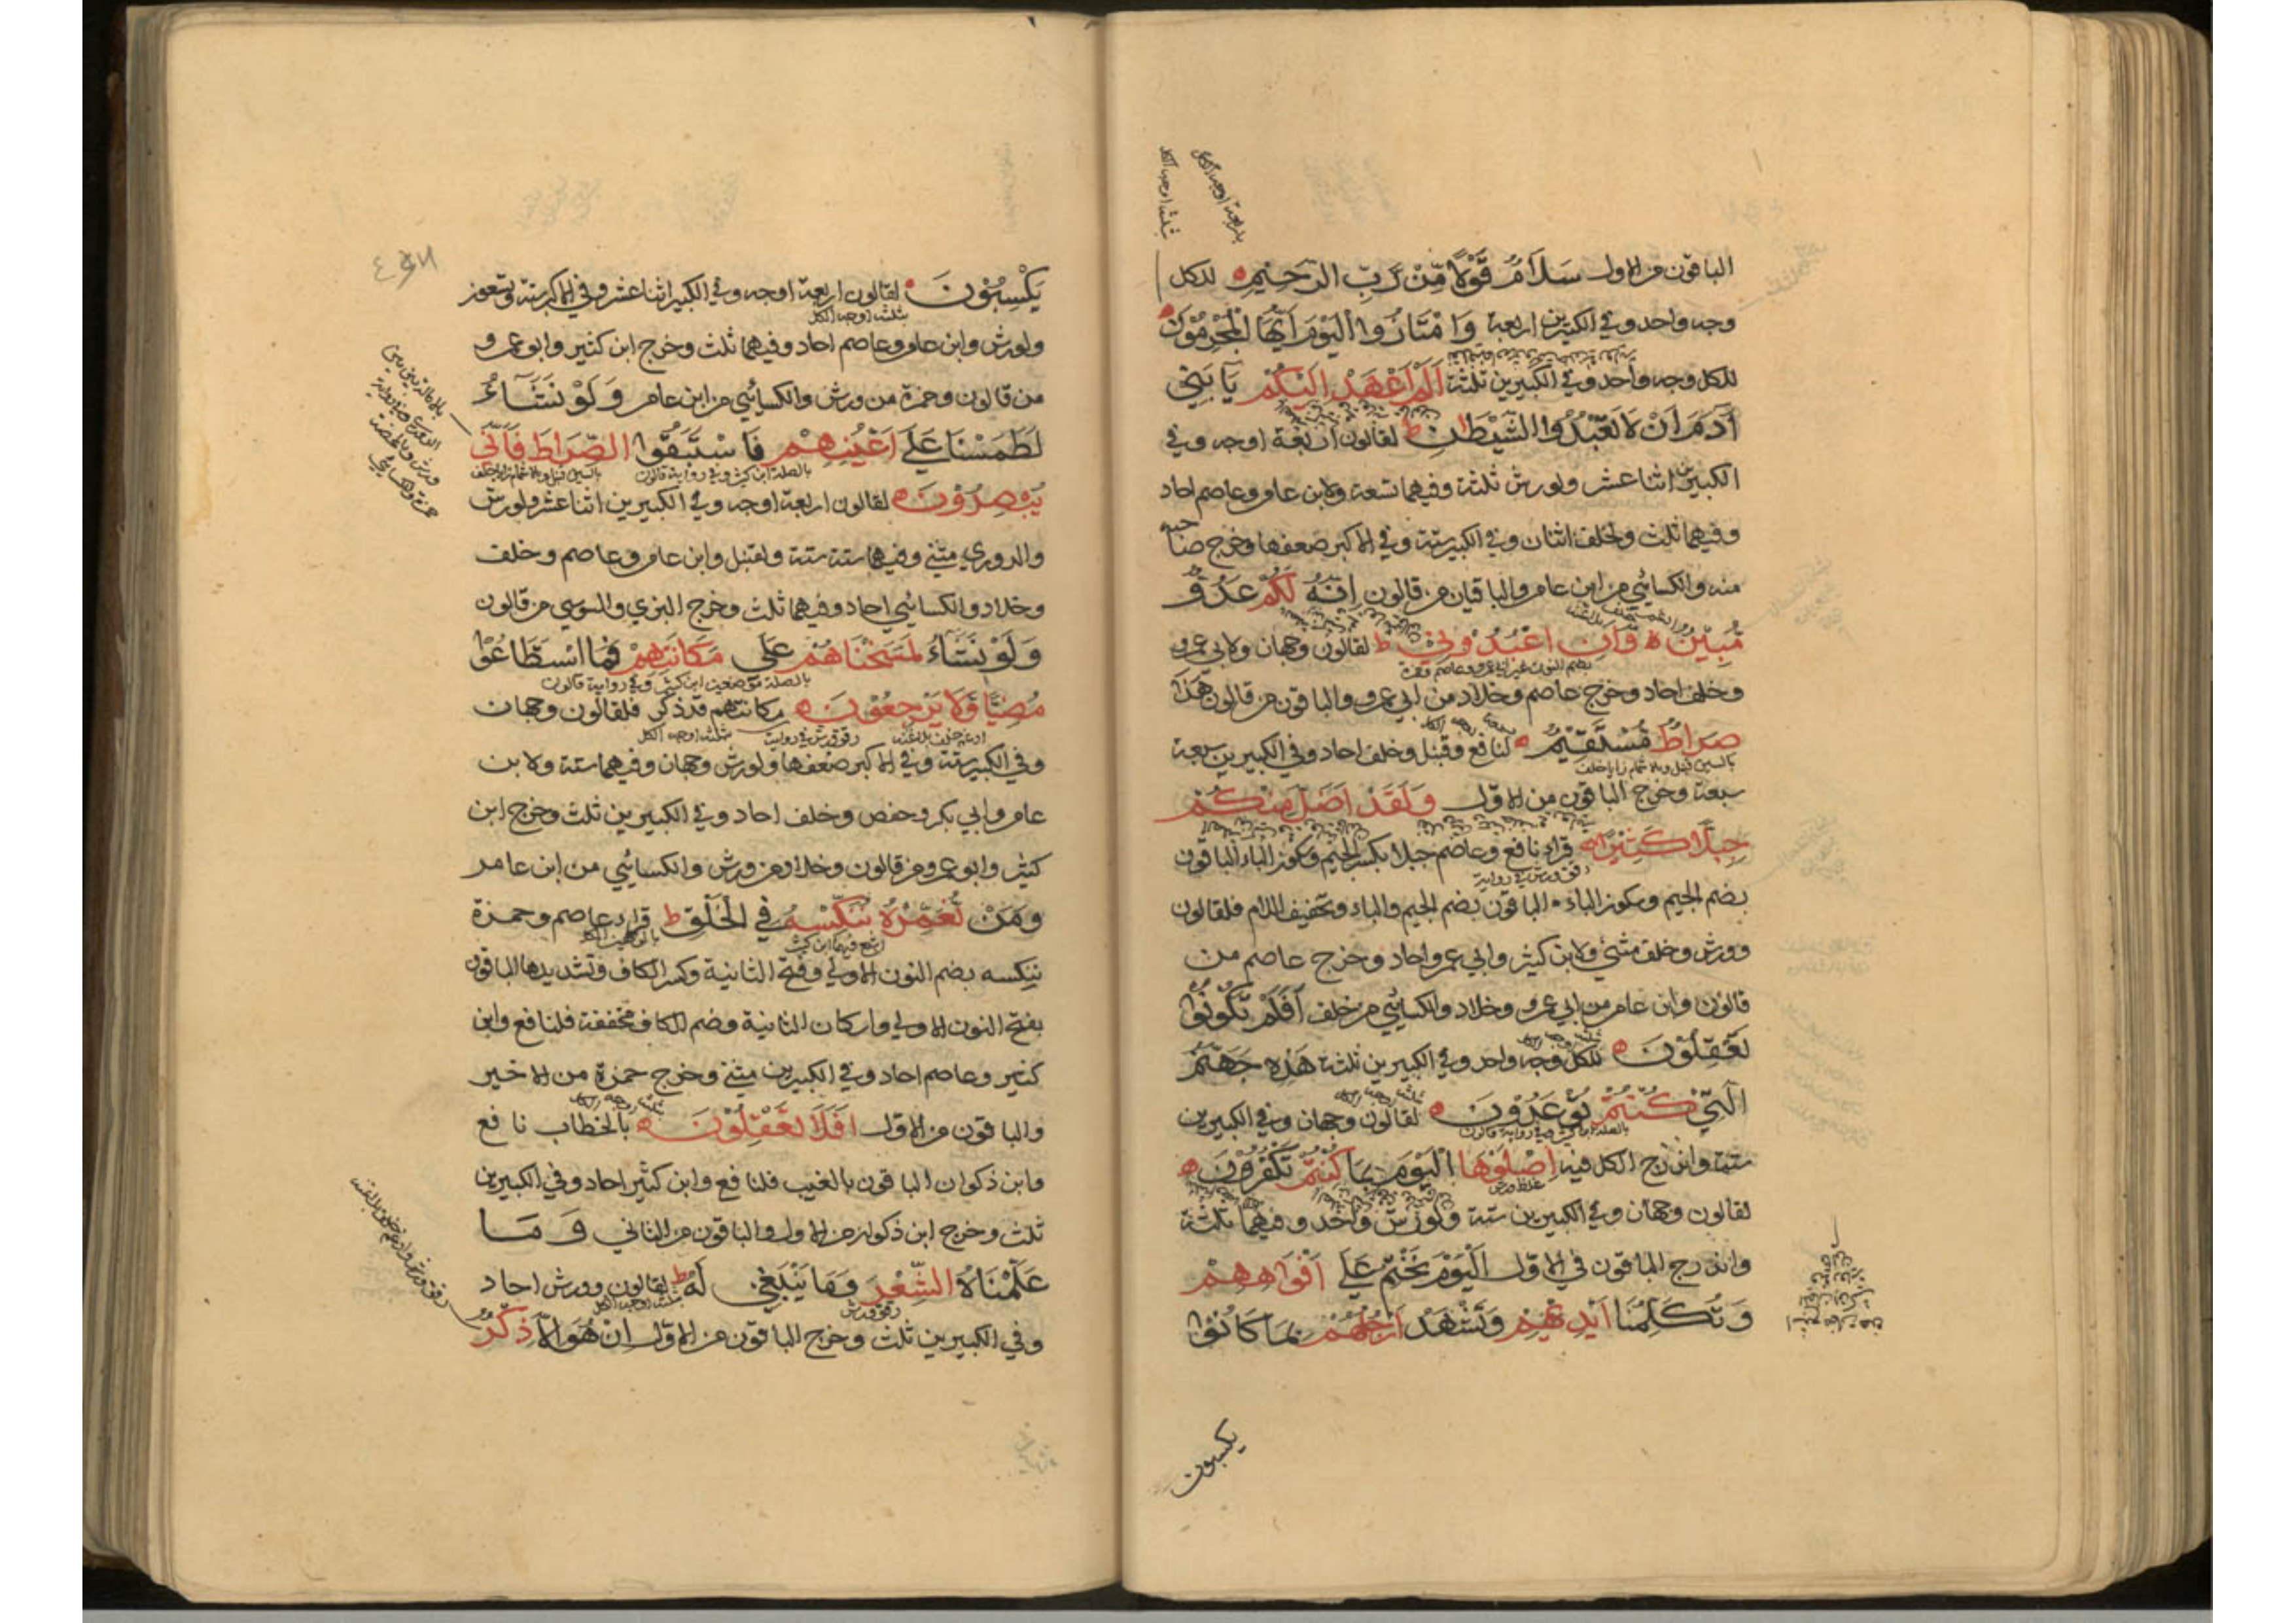 الباقون من الاول سَلَامٌ قَوْلًا مِّنْ رَبٍّ الرَّحِيمٍ للكل
وجه واحد وفي الكبيرين اربعة وَامْتَازُوا الْيَوْمَ اَيُّهَا الْمُجْرِمُونَ
للكل وجه واحد وفي الكبيرين ثلثة اَلَمْ اَعْهَدْ اِلَيْكُمْ يَا بَنِي
آدَمَ اَنْ لَا تَعْبُدُوا الشَّيْطَانَ ط لقالون اربعة اوجه وفي
الكبيرين اثنا عشر ولورش ثلثة وفيهما تسعة ولابن عامر وعاصم احاد
وفيهما ثلث ولخلف اثنان وفي الكبير ستة وفي الاكبر ضعفها وخرج صاحبه
منه والكسائي من ابن عامر والباقيان من قالون اِنَّهُ لَكُمْ عَدُوٌّ
مُبِينٌ وَّاَنِ اعْبُدُونِي ط لقالون وجهان ولابي عمرو
بضم النون غير ابي عمرو وعاصم وحمزة
وخلف احاد وخرج عاصم وخلاد من ابي عمرو والباقون من قالون هَذَا
صِرَاطٌ مُسْتَقِيمٌ لنافع وقنبل وخلف احاد وفي الكبيرين سبعة
بالسين قنبل وبالاشمام زايا خلف
سبعة وخرج الباقون من الاول وَلَقَدْ اَضَلَّ مِنْكُمْ
جِبِلًّا كَثِيرًا قراء نافع وعاصم جبلا بكسر الجيم وكوز الباء الباقون
رقق ورش في رواية
بضم الجيم وسكوز الباء الباقون بضم الجيم والباء وتخفيف اللام فلقالون
وورش وخلف مثنى ولابن كثير وابي عمرو احاد وخرج عاصم من
قالون وابن عامر من ابي عمرو وخلاد والكسائي من خلف اَفَلَمْ تَكُونُوا
تَعْقِلُونَ للكل وجه واحد وفي الكبيرين ثلثة هَذِهِ جَهَنَّمُ
الَّتِي كُنْتُمْ تُوعَدُونَ لقالون وجهان وفي الكبيرين
بالصلة ابن كثير وفي رواية قالون
ستة واندرج الكل فيه اِصْلَوْهَا الْيَوْمَ بِمَا كُنْتُمْ تَكْفُرُونَ
غلظ ورش
لقالون وجهان وفي الكبيرين ستة ولورش واحد وفيهما ثلثة
واندرج الباقون في الاول اَلْيَوْمَ نَخْتِمُ عَلَى اَفْوَاهِهِمْ
وَتُكَلِّمُنَا اَيْدِيهِمْ وَتَشْهَدُ اَرْجُلُهُمْ بِمَا كَانُوا
يكسبون
يَكْسِبُونَ لقالون اربعة اوجه وفي الكبير اثنا عشر وفي الاكبر ستة وتسعوز
ثلثة اوجه للكل
ولورش وابن عامر وعاصم احاد وفيهما ثلث وخرج ابن كثير وابو عمرو
من قالون وحمزة من ورش والكسائي من ابن عامر وَلَوْ نَشَاءُ
لَطَمَسْنَا عَلَى اَعْيُنِهِمْ فَاسْتَبَقُوا الصِّرَاطَ فَاَنَّى
بالصلة ابن كثير وفي رواية قالون بالسين قنبل وبالاشمام زايا خلف
يُبْصِرُونَ لقالون اربعة اوجه وفي الكبيرين اثنا عشر ولورش
والدوري مثنى وفيهما ستة ستة ولقنبل وابن عامر وعاصم وخلف
وخلاد والكسائي احاد وفيهما ثلث وخرج البزي والسوسي من قالون
وَلَوْ نَشَاءُ لَمَسَخْنَاهُمْ عَلَى مَكَانَتِهِمْ فَمَا اسْتَطَاعُوا
بالصلة موضعين ابن كثير وفي رواية قالون
مُضِيًّا وَلَا يَرْجِعُونَ مكانتهم قد ذكر فلقالون وجهان
ادغم خلف بلا غنة رقق ورش في رواية ثلثة اوجه للكل
وفي الكبير ستة وفي الاكبر ضعفها ولورش وجهان وفيهما ستة ولابن
عامر وابي بكر وحفص وخلف احاد وفي الكبيرين ثلث وخرج ابن
كثير وابو عمرو من قالون وخلاد من ورش والكسائي من ابن عامر
وَمَنْ نُعَمِّرْهُ نُنَكِّسْهُ فِي الْخَلْقِ ط قراء عاصم وحمزة
اشبع فيهما ابن كثير
ننكسه بضم النون الاولى وفتح الثانية وكسر الكاف وتشديدها الباقون
بفتح النون الاولى واسكان الثانية وضم الكاف مخففة فلنافع وابن
كثير وعاصم احاد وفي الكبيرين مثنى وخرج حمزة من الاخير
والباقون من الاول اَفَلَا تَعْقِلُونَ بالخطاب نافع
وابن ذكوان الباقون بالغيب فلنافع وابن كثير احاد وفي الكبيرين
ثلث وخرج ابن ذكوان من الاول والباقون من الثاني وَمَا
عَلَّمْنَاهُ الشِّعْرَ وَمَا يَنْبَغِي لَهُ ط لقالون وورش احاد
رقق ورش ثلثة اوجه للكل
وفي الكبيرين ثلث وخرج الباقون من الاول اِنْ هُوَ اِلَّا ذِكْرٌ